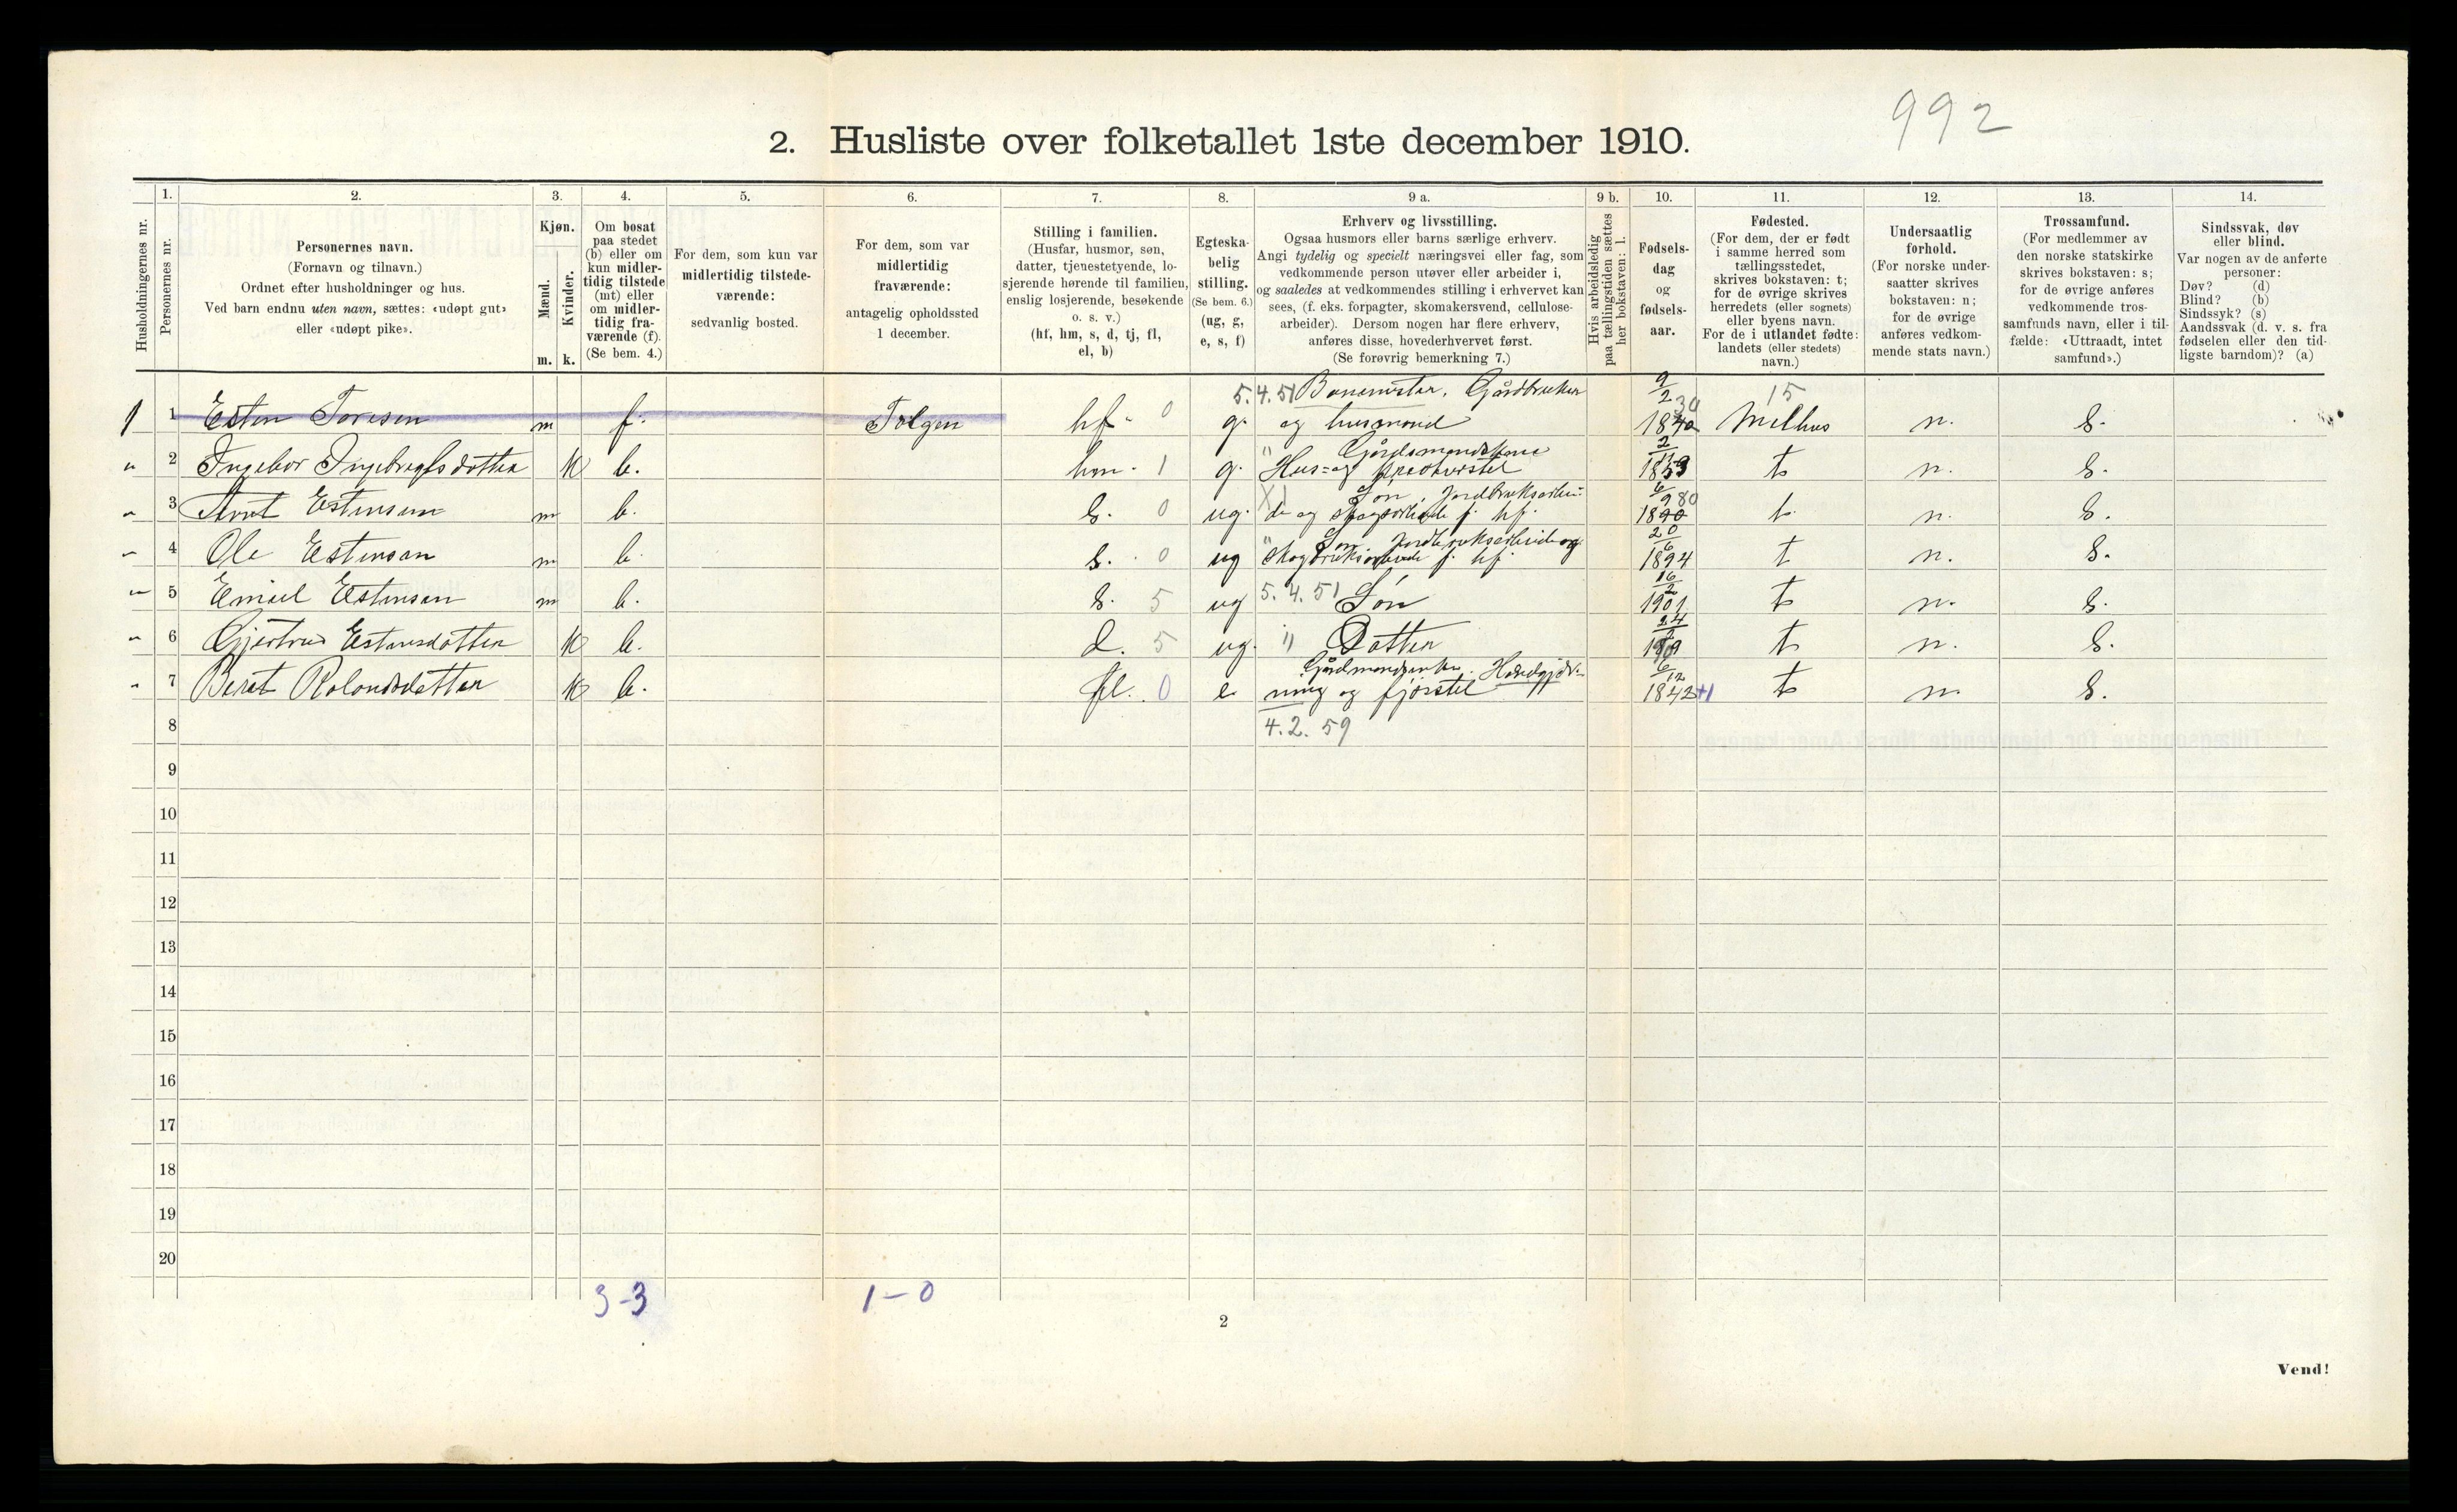 992
2. Husliste over folketallet 1ste december 1910.
Husholdningernes nr.
1.
Personernes nr.
2.
Personernes navn.
(Fornavn og tilnavn.)
Ordnet efter husholdninger og hus.
Ved barn endnu uten navn, sættes: «udøpt gut»
eller «udøpt pike».
3.
Kjøn.
Mænd.
Kvinder.
m. k.
4.
Om bosat
paa stedet
(b) eller om
kun midler-
tidig tilstede
(mt) eller
om midler-
tidig fra-
værende (f).
(Se bem. 4.)
5.
For dem, som kun var
midlertidig tilstede-
værende:
sedvanlig bosted.
6.
For dem, som var
midlertidig
fraværende:
antagelig opholdssted
1 december.
7.
Stilling i familien.
(Husfar, husmor, søn,
datter, tjenestetyende, lo-
sjerende hørende til familien,
enslig losjerende, besøkende
o. s. v.)
(hf, hm, s, d, tj, fl,
el, b)
8.
Egteska-
belig
stilling.
(Se bem. 6.)
(ug, g,
e, s, f)
9 a.
Erhverv og livsstilling.
Ogsaa husmors eller barns særlige erhverv.
Angi tydelig og specielt næringsvei eller fag, som
vedkommende person utøver eller arbeider i,
og saaledes at vedkommendes stilling i erhvervet kan
sees, (f. eks. forpagter, skomakersvend, cellulose-
arbeider). Dersom nogen har flere erhverv,
anføres disse, hovederhvervet først.
(Se forøvrig bemerkning 7.)
9 b.
Hvis arbeidsledig
paa tællingstiden sættes
her bokstaven: l.
10.
Fødsels-
dag
og
fødsels-
aar.
11.
Fødested.
(For dem, der er født
i samme herred som
tællingsstedet,
skrives bokstaven: t;
for de øvrige skrives
herredets (eller sognets)
eller byens navn.
For de i utlandet fødte:
landets (eller stedets)
navn.)
12.
Undersaatlig
forhold.
(For norske under-
saatter skrives
bokstaven: n;
for de øvrige
anføres vedkom-
mende stats navn.)
13.
Trossamfund.
(For medlemmer av
den norske statskirke
skrives bokstaven: s;
for de øvrige anføres
vedkommende tros-
samfunds navn, eller i til-
fælde: «Uttraadt, intet
samfund».)
14.
Sindssvak, døv
eller blind.
Var nogen av de anførte
personer:
Døv? (d)
Blind? (b)
Sindssyk? (s)
Aandssvak (d. v. s. fra
fødselen eller den tid-
ligste barndom)? (a)
5.4.51 Banemester, Gårdbruker 9/2 15
1 1 Esten Toresen m f. Tolgen hf. 0 g. og husmond Melhus n. s.
Gårdsmandskone
" 2 Ingebor Ingebregtsdotter K b. hm. 1 g. Hus= og t n. s.
Søn. Jordbruksarbei= 6/9 80
" 3 Arnt Estensen m b. s. 0 ug. de og skogsarbeide f. hf. 1890 t. n. s.
Søn Jordbruksarbeide og 20/6
" 4 Ole Estensen m b s. 0 ug f. hf 1894 t n. s.
16/2
" 5 Emiel Estensen m b. s. 5 ug 5.4.51 Søn 1901 t n. s.
" 6 Gjertrud Estensdotter K b. d. 5 ug. " Dotter t n. s.
Hosedgjör= 6/12
" 7 Beret Rolandsdotter K b. fl. 0 e ning og fjösstel 1842+1 t n. s.
8 4.2.59
9
10
11
12
13
14
15
16
17
18
19
20
3-3 1-0
2
Vend!